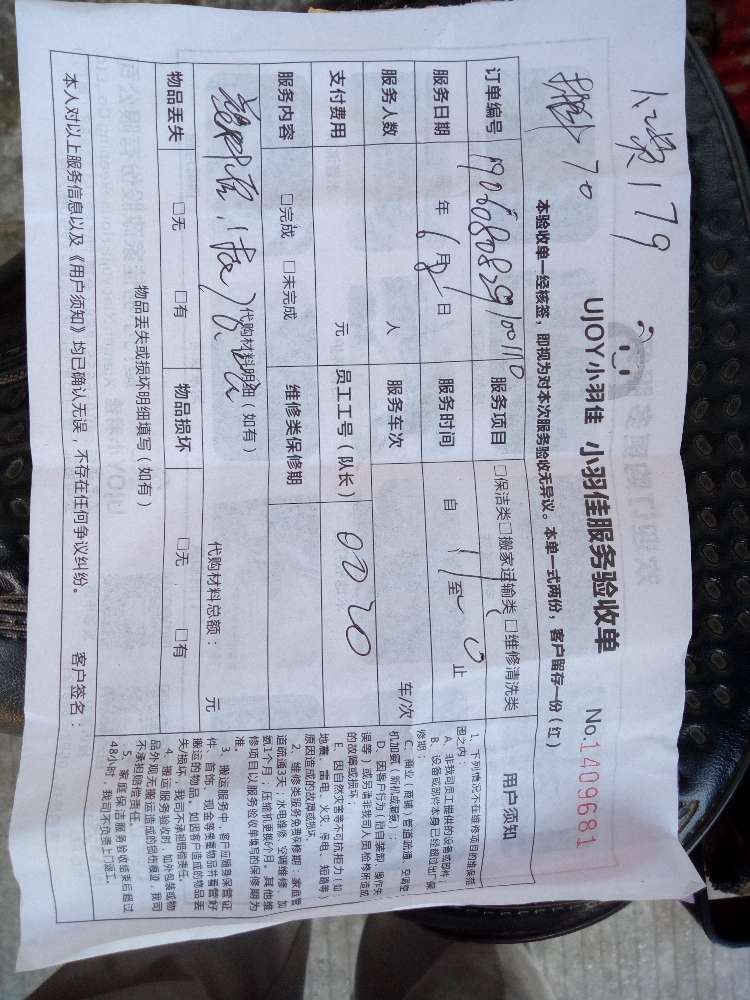 公费179
70
UJOY小羽佳 小羽佳服务验收单
No.1409681
本验收单一经核签，即视为对本次服务验收无异议。本单一式两份，客户留存一份(红)
订单编号
服务项目 □保洁类□搬家运输类□维修清洗类
服务日期 年6月8日 服务时间 自11至 止
服务人数 人 服务车次 车/次
支付费用 元 员工工号（队长） 0220
服务内容 □完成 □未完成 维修类保修期
代购材料明细（如有） 代购材料总额： 元
物品丢失 □无 □有 物品损坏 □无 □有
物品丢失或损坏明细填写（如有）
本人对以上服务信息以及《用户须知》均已确认无误，不存在任何争议纠纷。 客户签名：
用户须知
1、下列情况不在维修项目的维保范
围之内：
A、非我司员工提供的设备或部件
B、设备或部件本身已经超过出厂保
修期；
C、商业／商铺／管道疏通、空调空
机加氨（新机或漏氨）；
D、因客户行为（自自装卸、操作失
误等）或另请非我司人员检修所造成
的故障或损坏；
E、因自然灾害等不可抗拒力（如：
地震、雷电、火灾、停电、短路等）
原因造成的故障或损坏。
2、维修类服务免费保修期：家庭管
道疏通3天、水电维修、空调维修、加
氨1个月，压缩机更换6个月，其他维
修项目以服务验收单填写的保修期为
准
3、搬运服务中，客户应随身保管证
件、首饰、现金等贵重物品并看管好
搬运的物品。如因客户造成的物品丢
失/损坏，我司不承担赔偿责任。
4、搬运服务验收时，如外包装或物
品外观无搬运造成的损伤痕迹，我司
不承担赔偿责任。
5、家庭保洁服务验收结束后超过
48小时，我司不负责上门返工。